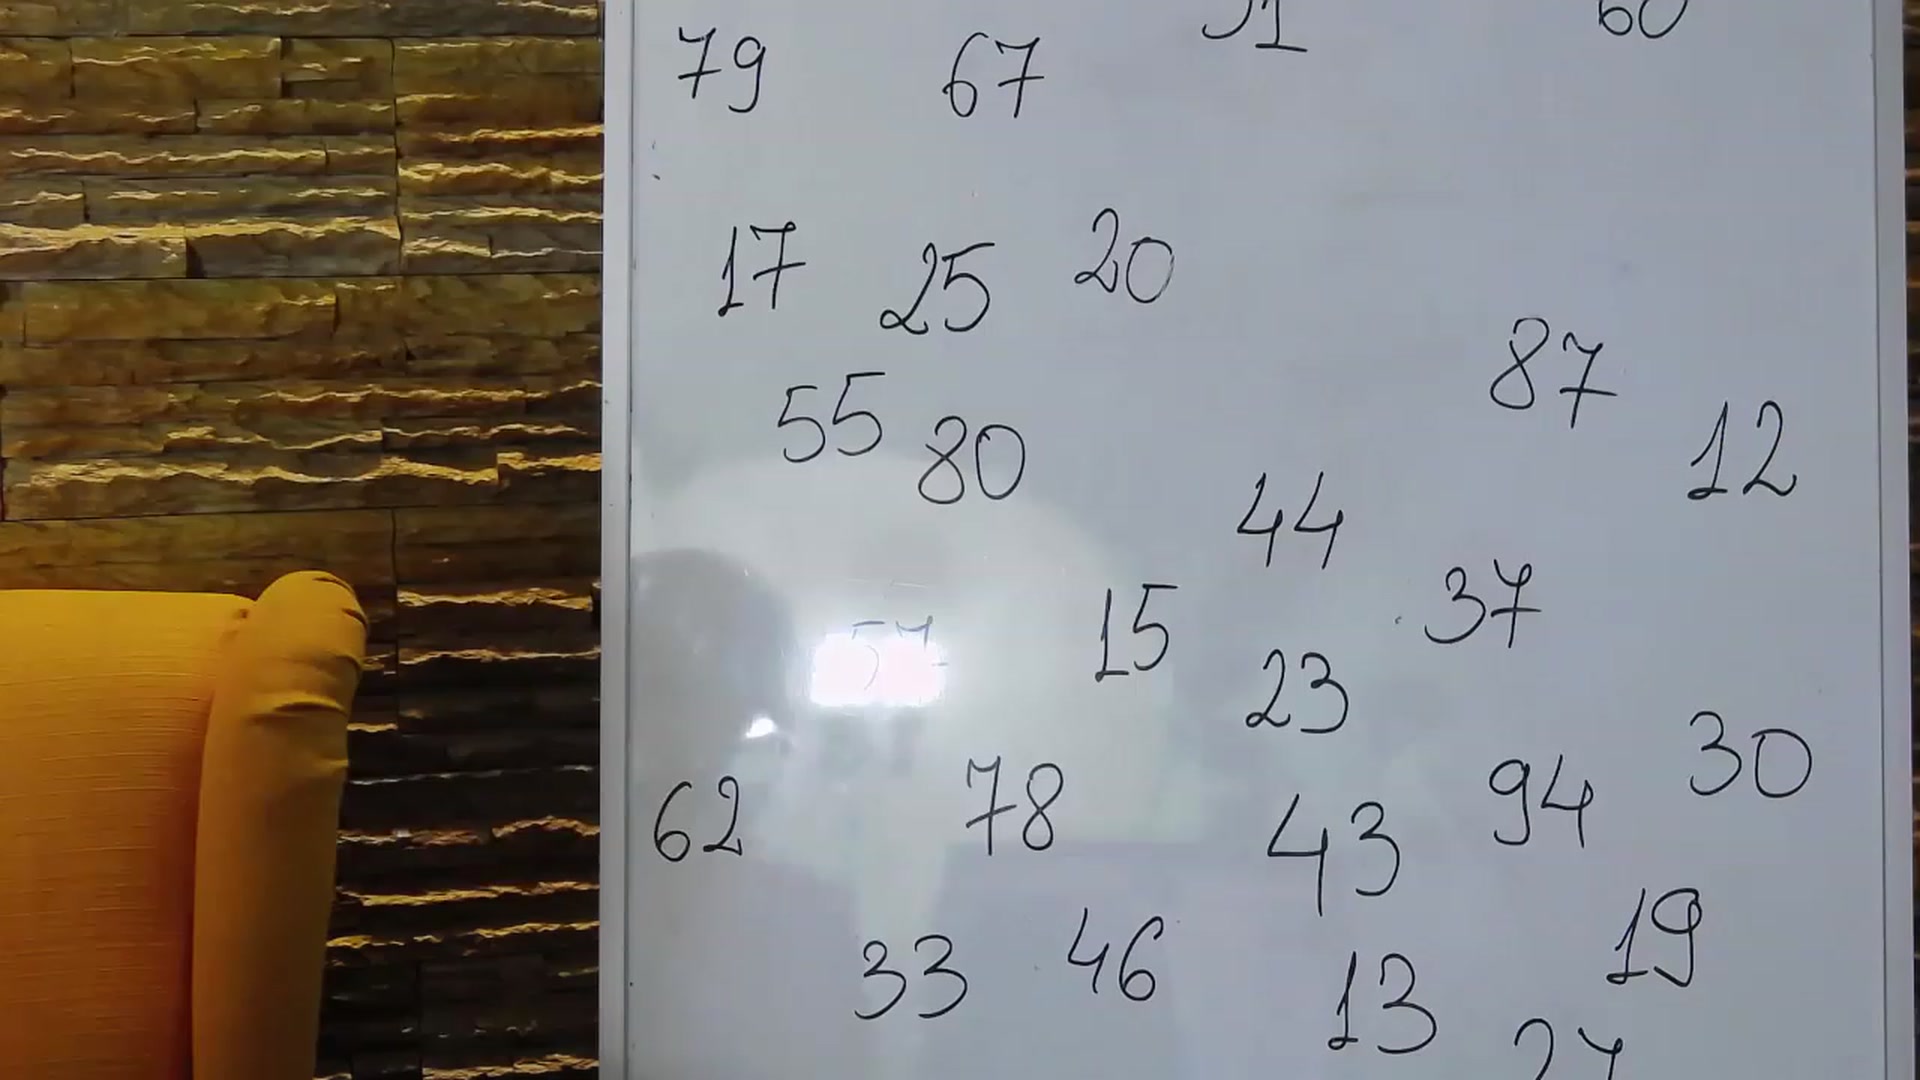 79 67
17 25 20
87
55 80
12
44
37
15
57
23
30
62 78 94
43
19
33 46
13